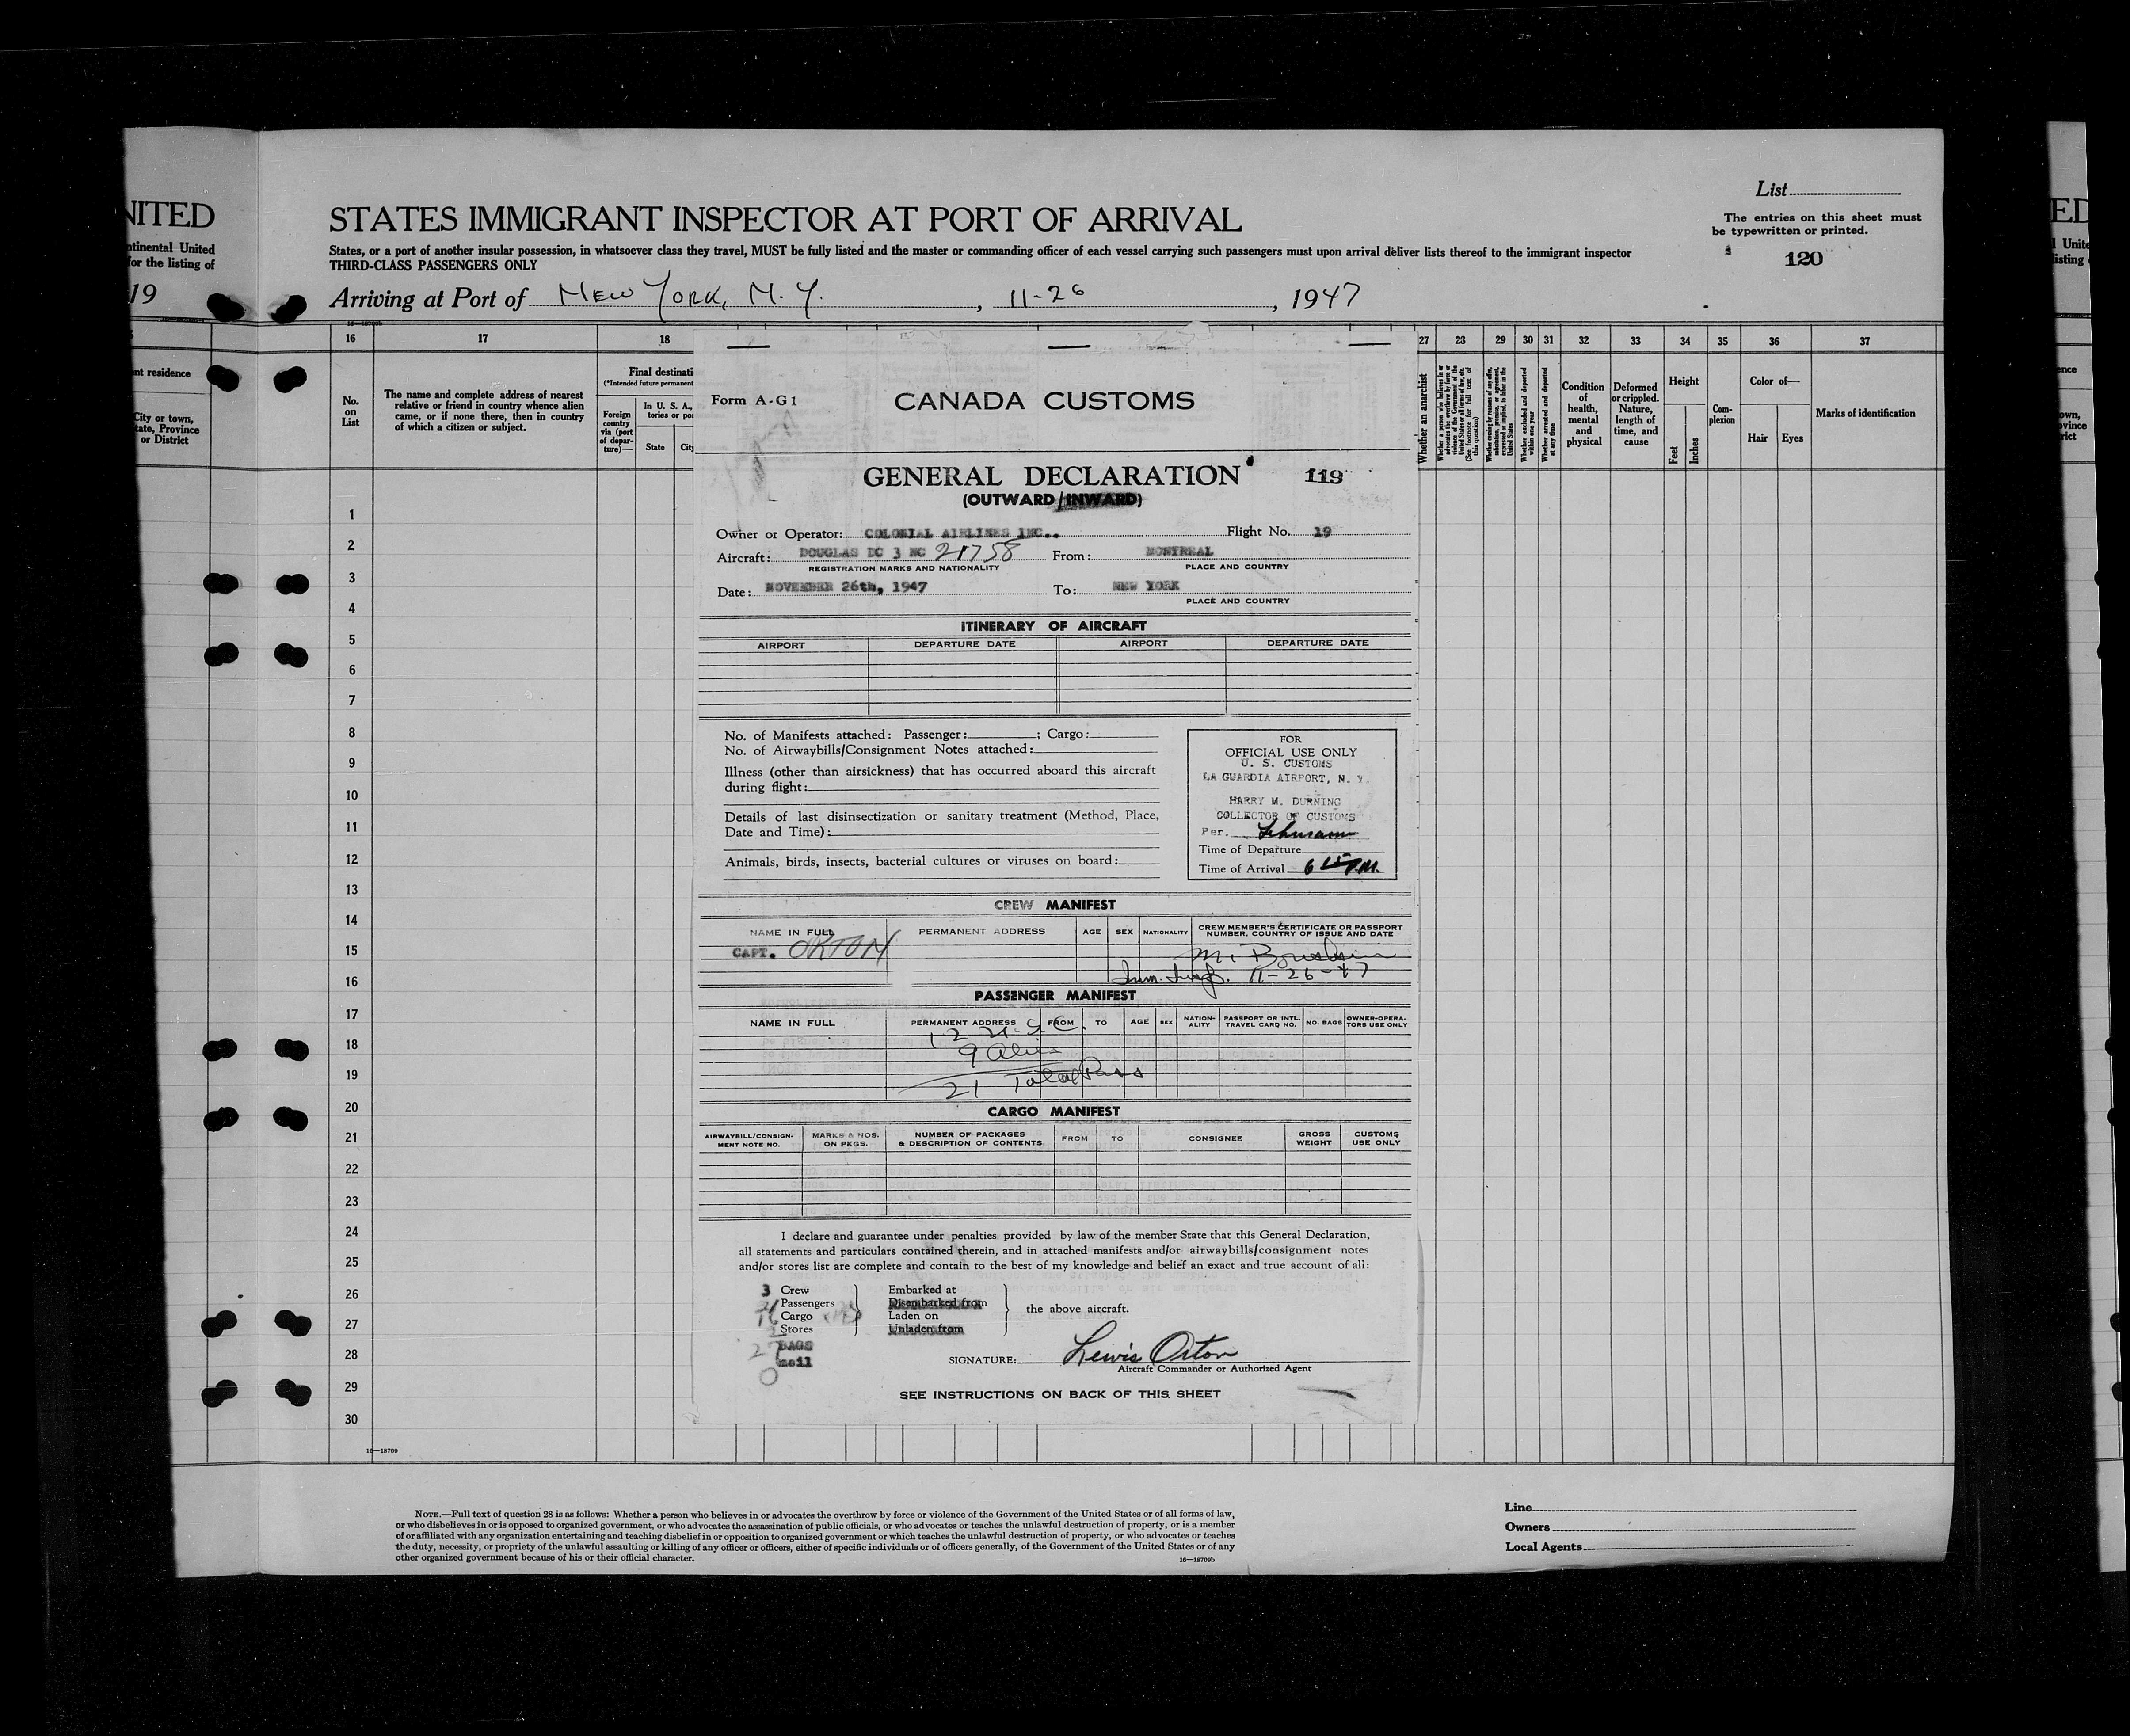 List
STATES IMMIGRANT INSPECTOR AT PORT OF ARRIVAL
The entries on this sheet must
be typewritten or printed.
States, or a port of another insular possession, in whatsoever class they travel, MUST be fully listed and the master or commanding officer of each vessel carrying such passengers must upon arrival deliver lists thereof to the immigrant inspector
THIRD-CLASS PASSENGERS ONLY
120
Arriving at Port of NEW YORK, N.Y., 11-26, 1947
NITED
ntinental United
for the listing of
19
nt residence
City or town,
tate, Province
or District
16 17 18 27 28 29 30 31 32 33 34 35 36 37
No.
on
List
The name and complete address of nearest
relative or friend in country whence alien
came, or if none there, then in country
of which a citizen or subject.
Final destinati
(*Intended future permanent
Foreign
country
via (port
of depar-
ture)—
In U. S. A.,
tories or po
State
City
Whether an anarchist
Condition
of
health,
mental
and
physical
Deformed
or crippled.
Nature,
length of
time, and
cause
Height
Feet
Inches
Com-
plexion
Color of—
Hair
Eyes
Marks of identification
1
2
3
4
5
6
7
8
9
10
11
12
13
14
15
16
17
18
19
20
21
22
23
24
25
26
27
28
29
30
16—18709
Form A-G1
CANADA CUSTOMS
GENERAL DECLARATION 119
(OUTWARD/INWARD)
Owner or Operator: COLONIAL AIRLINES INC.. Flight No. 19
Aircraft: DOUGLAS DC 3 NC 21758 From: MONTREAL
REGISTRATION MARKS AND NATIONALITY PLACE AND COUNTRY
Date: NOVEMBER 26th, 1947 To: NEW YORK
PLACE AND COUNTRY
ITINERARY OF AIRCRAFT
AIRPORT DEPARTURE DATE AIRPORT DEPARTURE DATE
No. of Manifests attached: Passenger: ; Cargo:
No. of Airwaybills/Consignment Notes attached:
Illness (other than airsickness) that has occurred aboard this aircraft
during flight:
Details of last disinsectization or sanitary treatment (Method, Place,
Date and Time):
Animals, birds, insects, bacterial cultures or viruses on board:
FOR
OFFICIAL USE ONLY
U. S. CUSTOMS
LA GUARDIA AIRPORT, N. Y.
HARRY M. DURNING
COLLECTOR OF CUSTOMS
Per.
Time of Departure
Time of Arrival 6 15 P.M.
CREW MANIFEST
NAME IN FULL PERMANENT ADDRESS AGE SEX NATIONALITY CREW MEMBER'S CERTIFICATE OR PASSPORT
NUMBER, COUNTRY OF ISSUE AND DATE
CAPT. ORTON
Imm. Insp. 11-26-47
PASSENGER MANIFEST
NAME IN FULL PERMANENT ADDRESS FROM TO AGE SEX NATION-
ALITY PASSPORT OR INTL.
TRAVEL CARD NO. NO. BAGS OWNER-OPERA-
TORS USE ONLY
12 U.S.C.
9 Alien
21 Total Pass
CARGO MANIFEST
AIRWAYBILL/CONSIGN-
MENT NOTE NO. MARKS & NOS.
ON PKGS. NUMBER OF PACKAGES
& DESCRIPTION OF CONTENTS FROM TO CONSIGNEE GROSS
WEIGHT CUSTOMS
USE ONLY
I declare and guarantee under penalties provided by law of the member State that this General Declaration,
all statements and particulars contained therein, and in attached manifests and/or airwaybills/consignment notes
and/or stores list are complete and contain to the best of my knowledge and belief an exact and true account of all:
3 Crew
21 Passengers
Cargo
Stores
BAGS
mail
0
Embarked at
Disembarked from
Laden on
Unladen from
the above aircraft.
SIGNATURE: Lewis Orton
Aircraft Commander or Authorized Agent
SEE INSTRUCTIONS ON BACK OF THIS SHEET
NOTE.—Full text of question 28 is as follows: Whether a person who believes in or advocates the overthrow by force or violence of the Government of the United States or of all forms of law,
or who disbelieves in or is opposed to organized government, or who advocates the assassination of public officials, or who advocates or teaches the unlawful destruction of property, or is a member
of or affiliated with any organization entertaining and teaching disbelief in or opposition to organized government or which teaches the unlawful destruction of property, or who advocates or teaches
the duty, necessity, or propriety of the unlawful assaulting or killing of any officer or officers, either of specific individuals or of officers generally, of the Government of the United States or of any
other organized government because of his or their official character.
16—18709b
Line
Owners
Local Agents